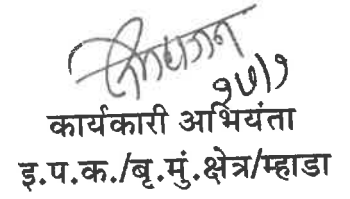 १५/१
कार्यकारी अभियंता
इ.प.क./बृ.मुं.क्षेत्र/म्हाडा